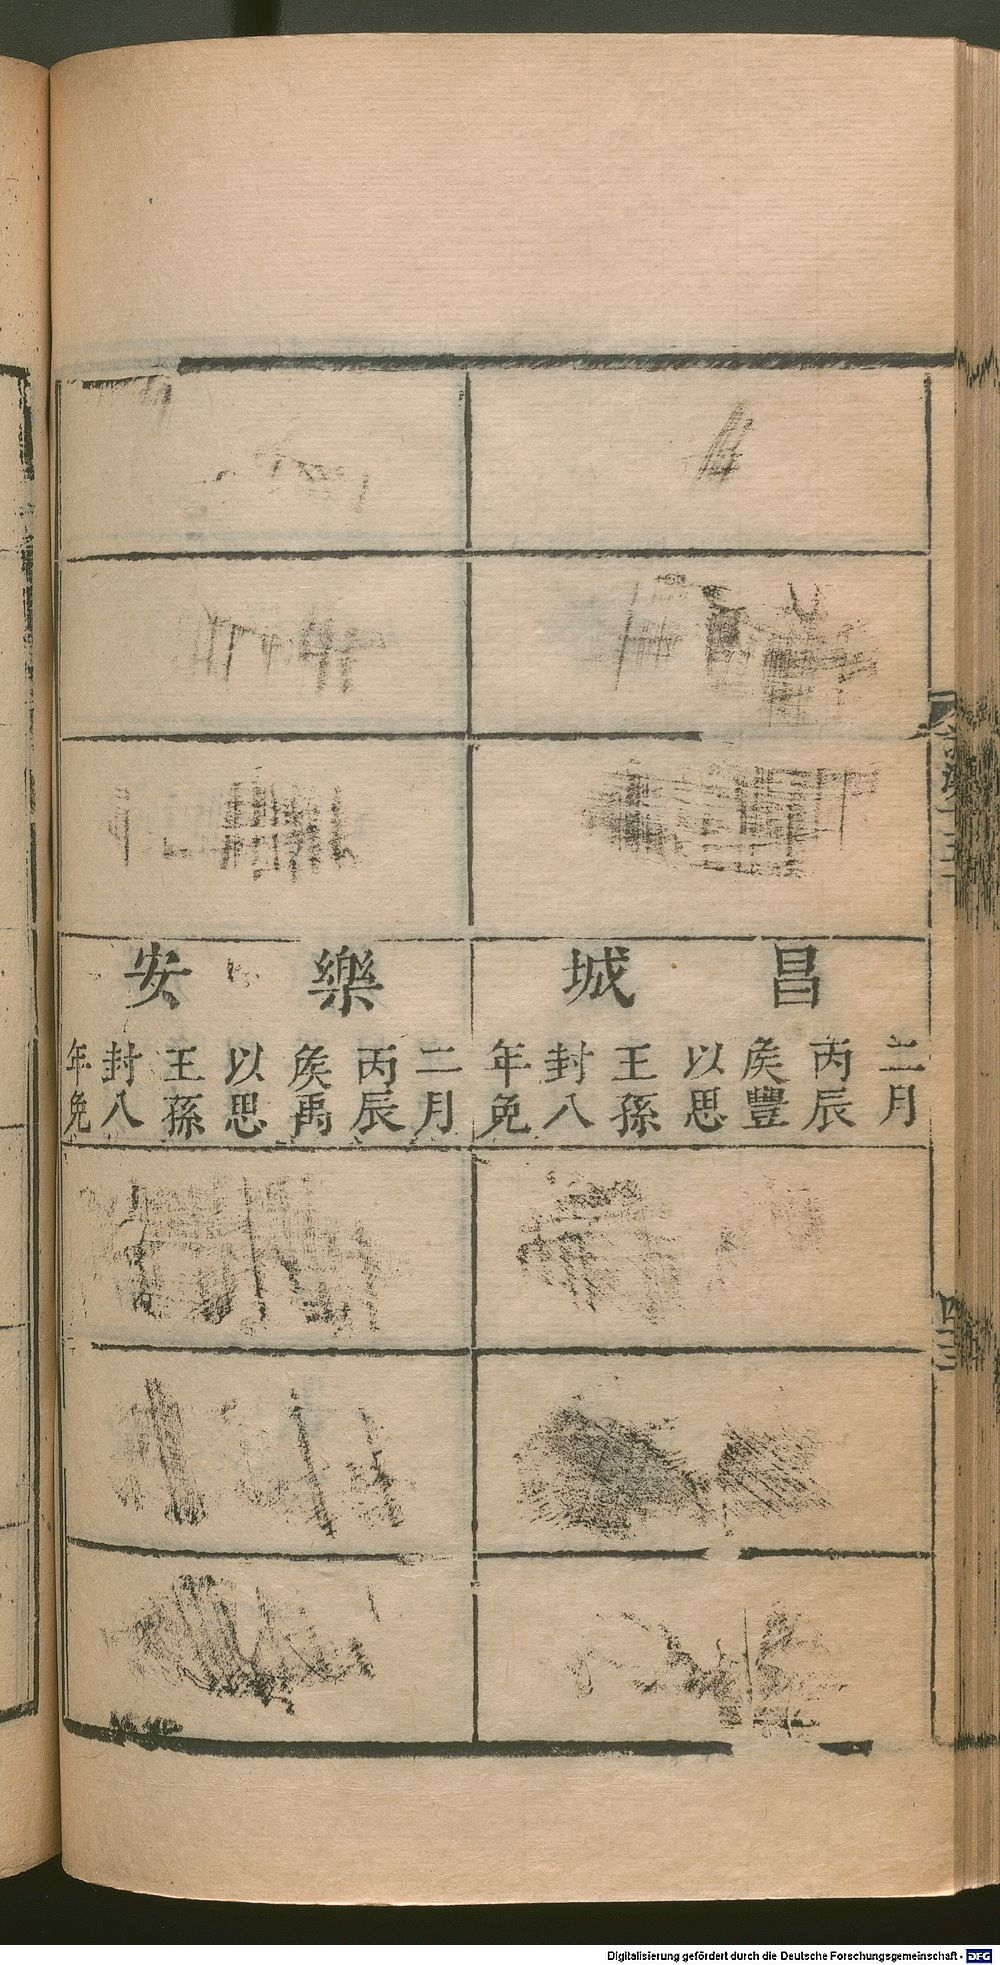 昌城
二月
丙辰
矦豐
以思
王孫
封八
年免
樂安
二月
丙辰
矦禹
以思
王孫
封八
年免
四三
Digitalisierung gefördert durch die Deutsche Forschungsgemeinschaft - DFG